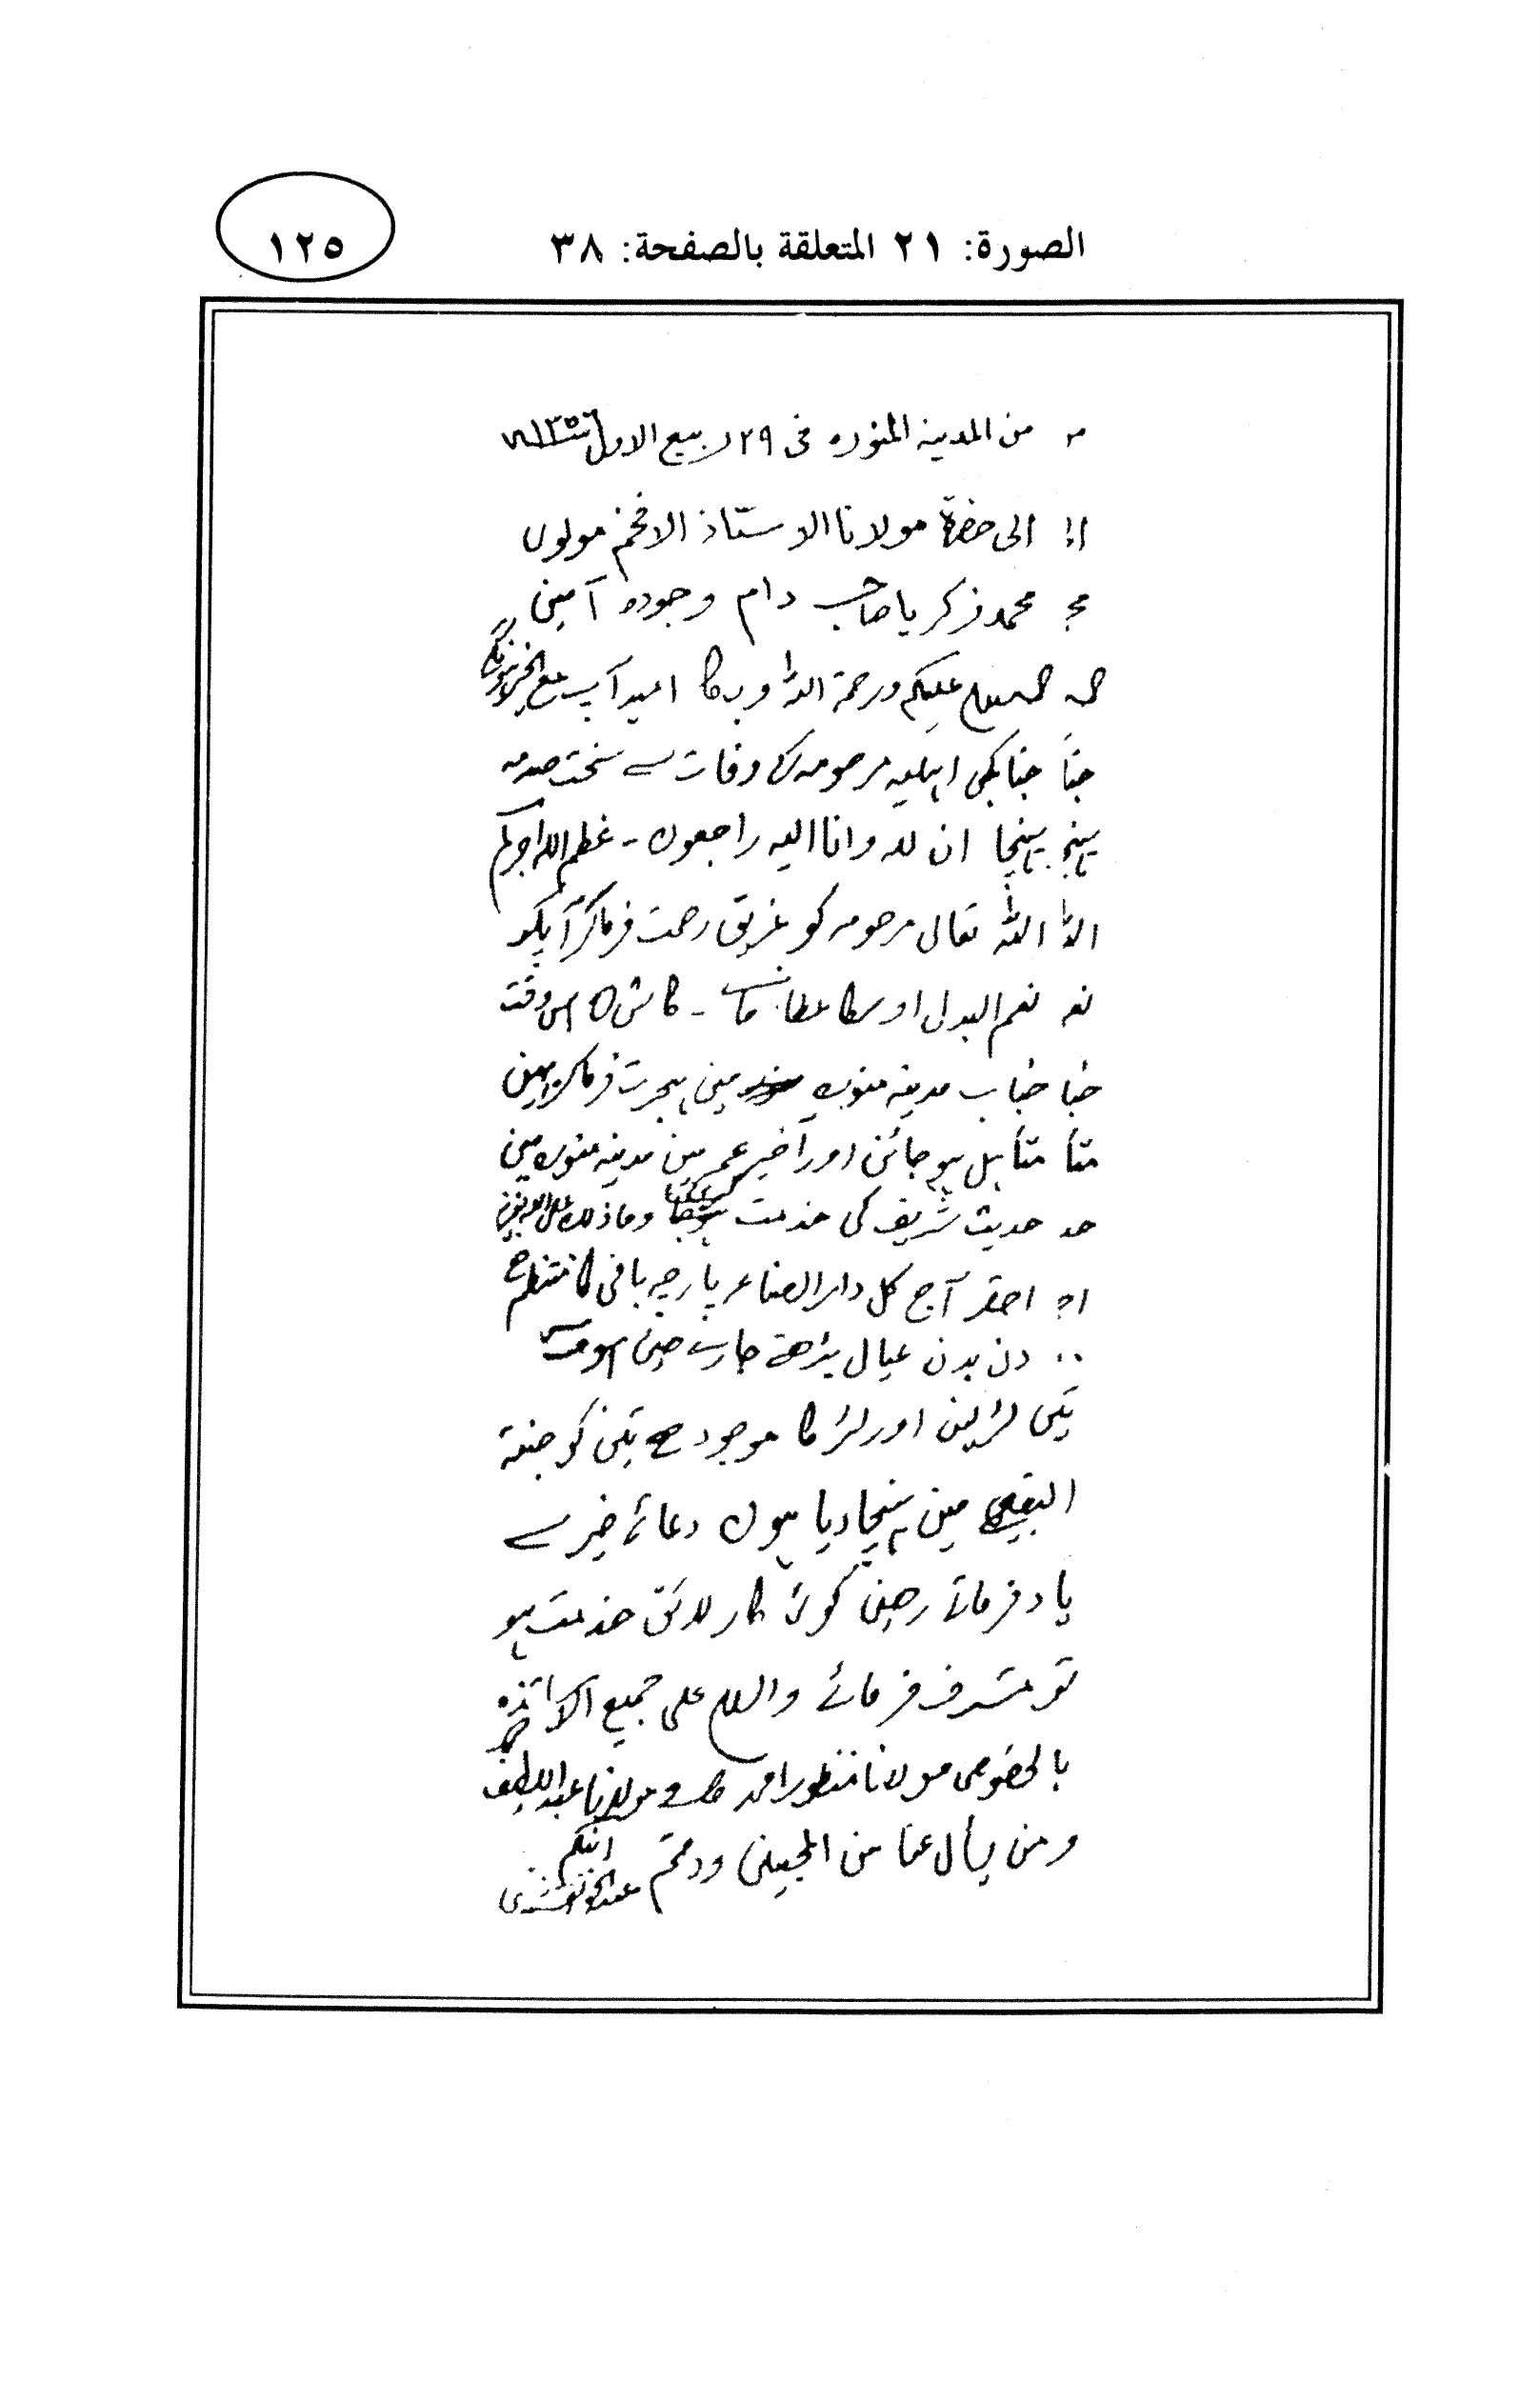 ١٢٥
الصورة: ٢١ المتعلقة بالصفحة: ٣٨
من المدينه المنوره فى ٢٩ ربيع الاول
الى حضرة مولانا الاستاذ الافخم مولوى
محمد زكريا صاحب دام وجوده آمين
السلام عليكم ورحمة الله وبركا اميد آپ مع الخير ہونگے
جنابکی اہلیہ مرحومہ کی وفات سے سخت صدمہ
پہنچا ان لله وانا اليه راجعون - عظم الله اجركم
الله تعالى مرحومہ کو غریق رحمت فرماکر آپکو
نعم البدل اوسکا عطا فرمائے - کاش کہ اس وقت
جناب مدینہ منورہ میں ہجرت فرماکر یہیں
متأہل ہوجائیں اور آخیر عمر میں مدینہ منورہ میں
حدیث شریف کی خدمت وماذلك على الله بعزيز
احقر آج کل دار الصناعہ پارچہ بافی کا منتظم ہے
دن بدن عیال بڑھتے جارہے ہیں اسوقت
تین لڑکیں اور لڑکا موجود ہے تین کو جنة
البقیع میں پہنچادیا ہوں دعائے خیر سے
یاد فرماتے رہیں کوئی کار لائق خدمت ہو
تو مشرف فرمائے والسلام على جميع الاساتذه
بالخصوص مولانا منظور احمد مولانا عبد اللطيف
ومن يسأل عنا من المحبين ودمتم